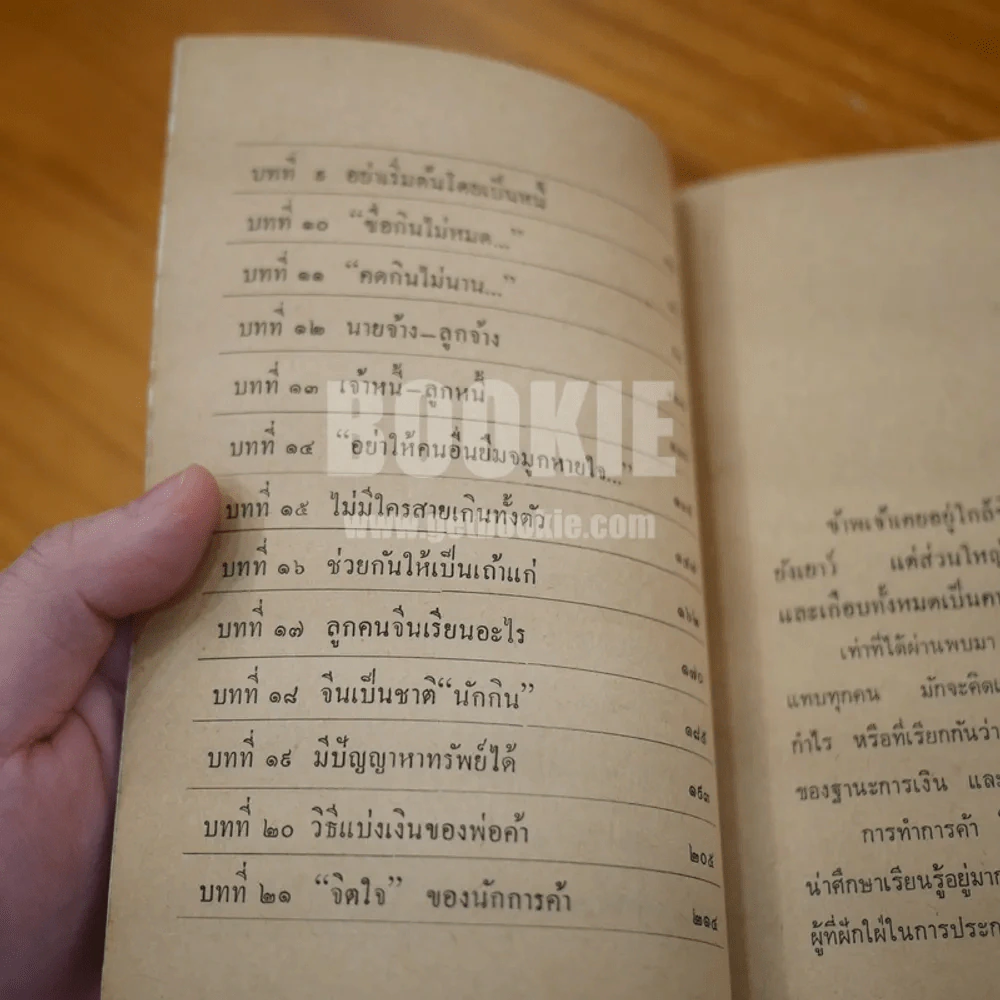 บทที่ ๙ อย่าเริ่มต้นโดยเป็นหนี้
บทที่ ๑๐ “ซื่อกินไม่หมด...”
บทที่ ๑๑ “คดกินไม่นาน...”
บทที่ ๑๒ นายจ้าง–ลูกจ้าง
บทที่ ๑๓ เจ้าหนี้–ลูกหนี้
บทที่ ๑๔ “อย่าให้คนอื่นยืมจมูกหายใจ...”
บทที่ ๑๕ ไม่มีใครสายเกินทั้งตัว
บทที่ ๑๖ ช่วยกันให้เป็นเถ้าแก่ ๑๖๒
บทที่ ๑๗ ลูกคนจีนเรียนอะไร ๑๗๐
บทที่ ๑๘ จีนเป็นชาติ“นักกิน” ๑๘๕
บทที่ ๑๙ มีปัญญาหาทรัพย์ได้ ๑๙๓
บทที่ ๒๐ วิธีแบ่งเงินของพ่อค้า ๒๐๕
บทที่ ๒๑ “จิตใจ” ของนักการค้า ๒๑๔
BOOKIE
www.getbookie.com
ข้าพเจ้าเคยอยู่ใกล้
ยังเยาว์ แต่ส่วนใหญ่
และเกือบทั้งหมดเป็นคน
เท่าที่ได้ผ่านพบมา
แทบทุกคน มักจะคิด
กำไร หรือที่เรียกกันว่า
ของฐานะการเงิน และ
การทำการค้า
น่าศึกษาเรียนรู้อยู่มาก
ผู้ที่ฝักใฝ่ในการประก